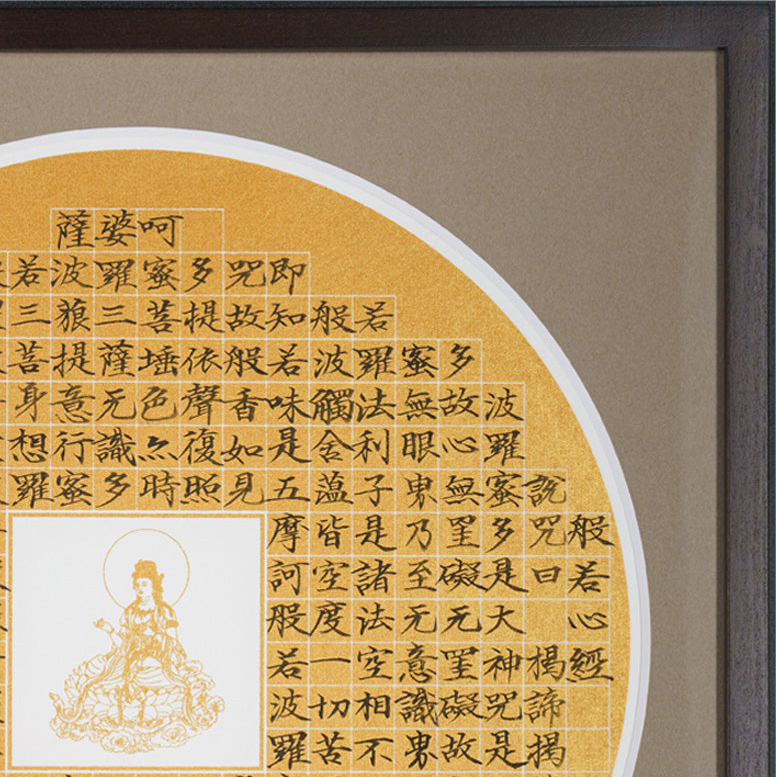 般若心經
説咒曰揭諦揭
波羅蜜多是大神咒是
多故心無罣礙无罣礙故
蜜無眼界乃至无意識界
若羅法利子是諸法空相不
般波觸舍蘊皆空度一切苦
即知若味是五摩訶般若波羅
咒故般香如見
多提依聲復照
呵蜜菩埵色亦時
婆羅三薩无識多
薩波藐提意行蜜
若三菩身想羅